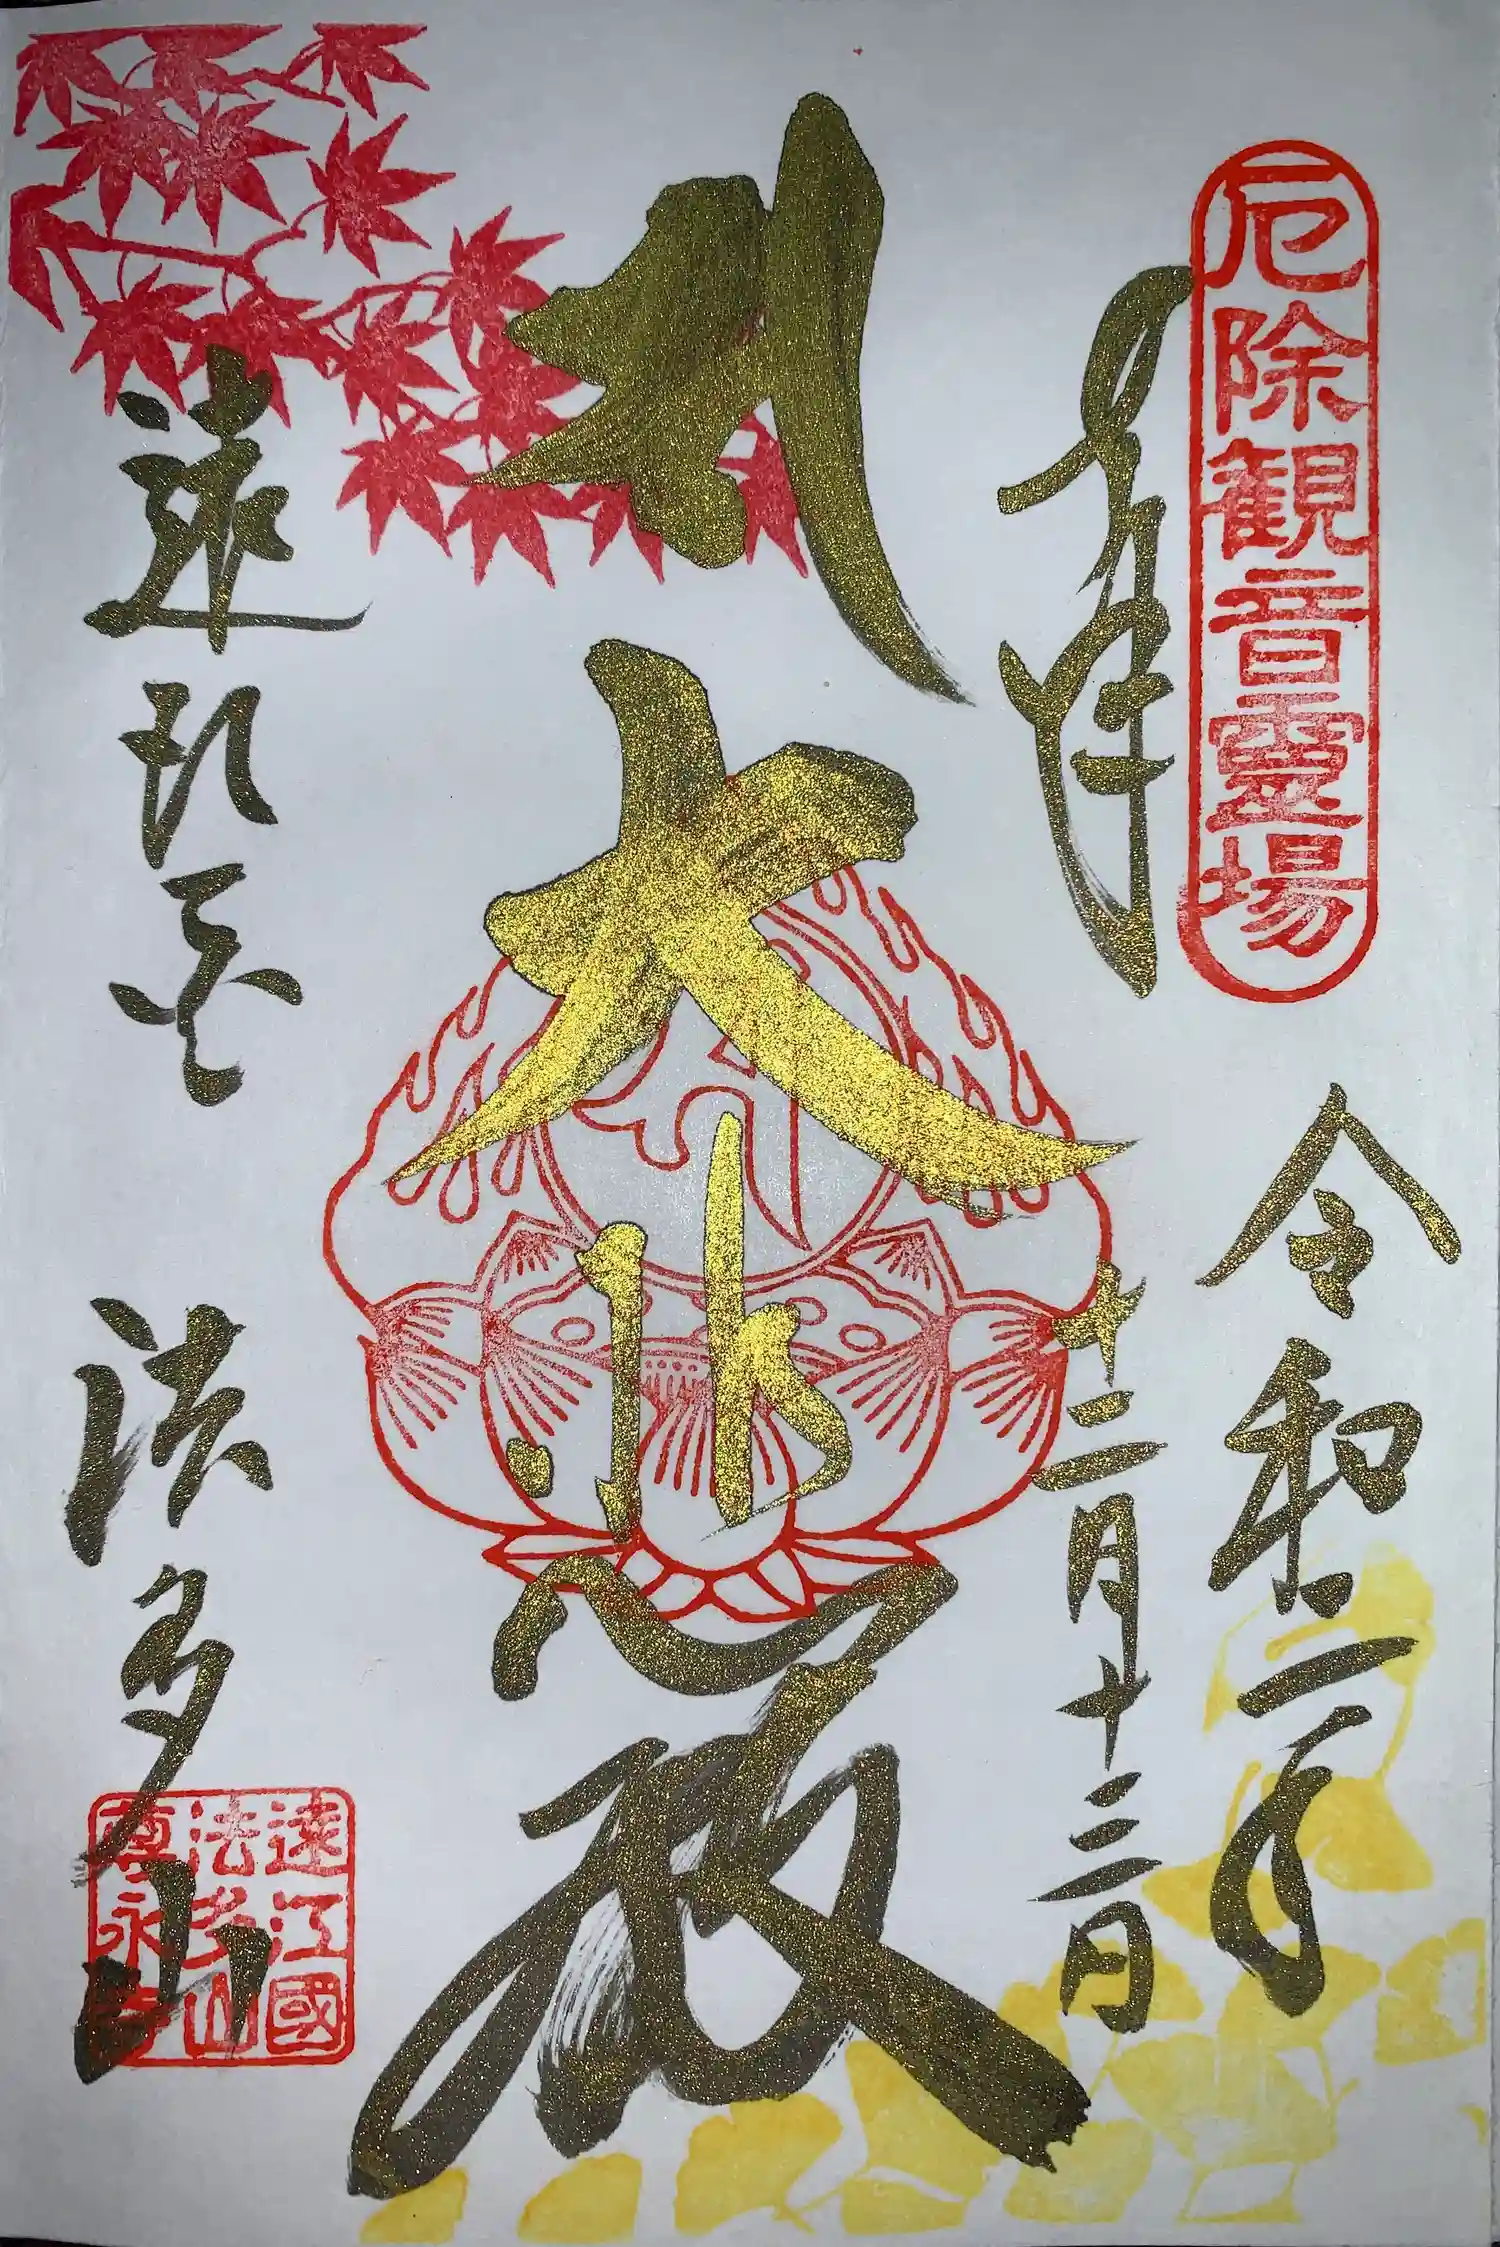 厄除観音霊場
奉拝
令和二年
十二月十三日
大悲殿
遠
法多山
遠江國
法多山
尊永寺